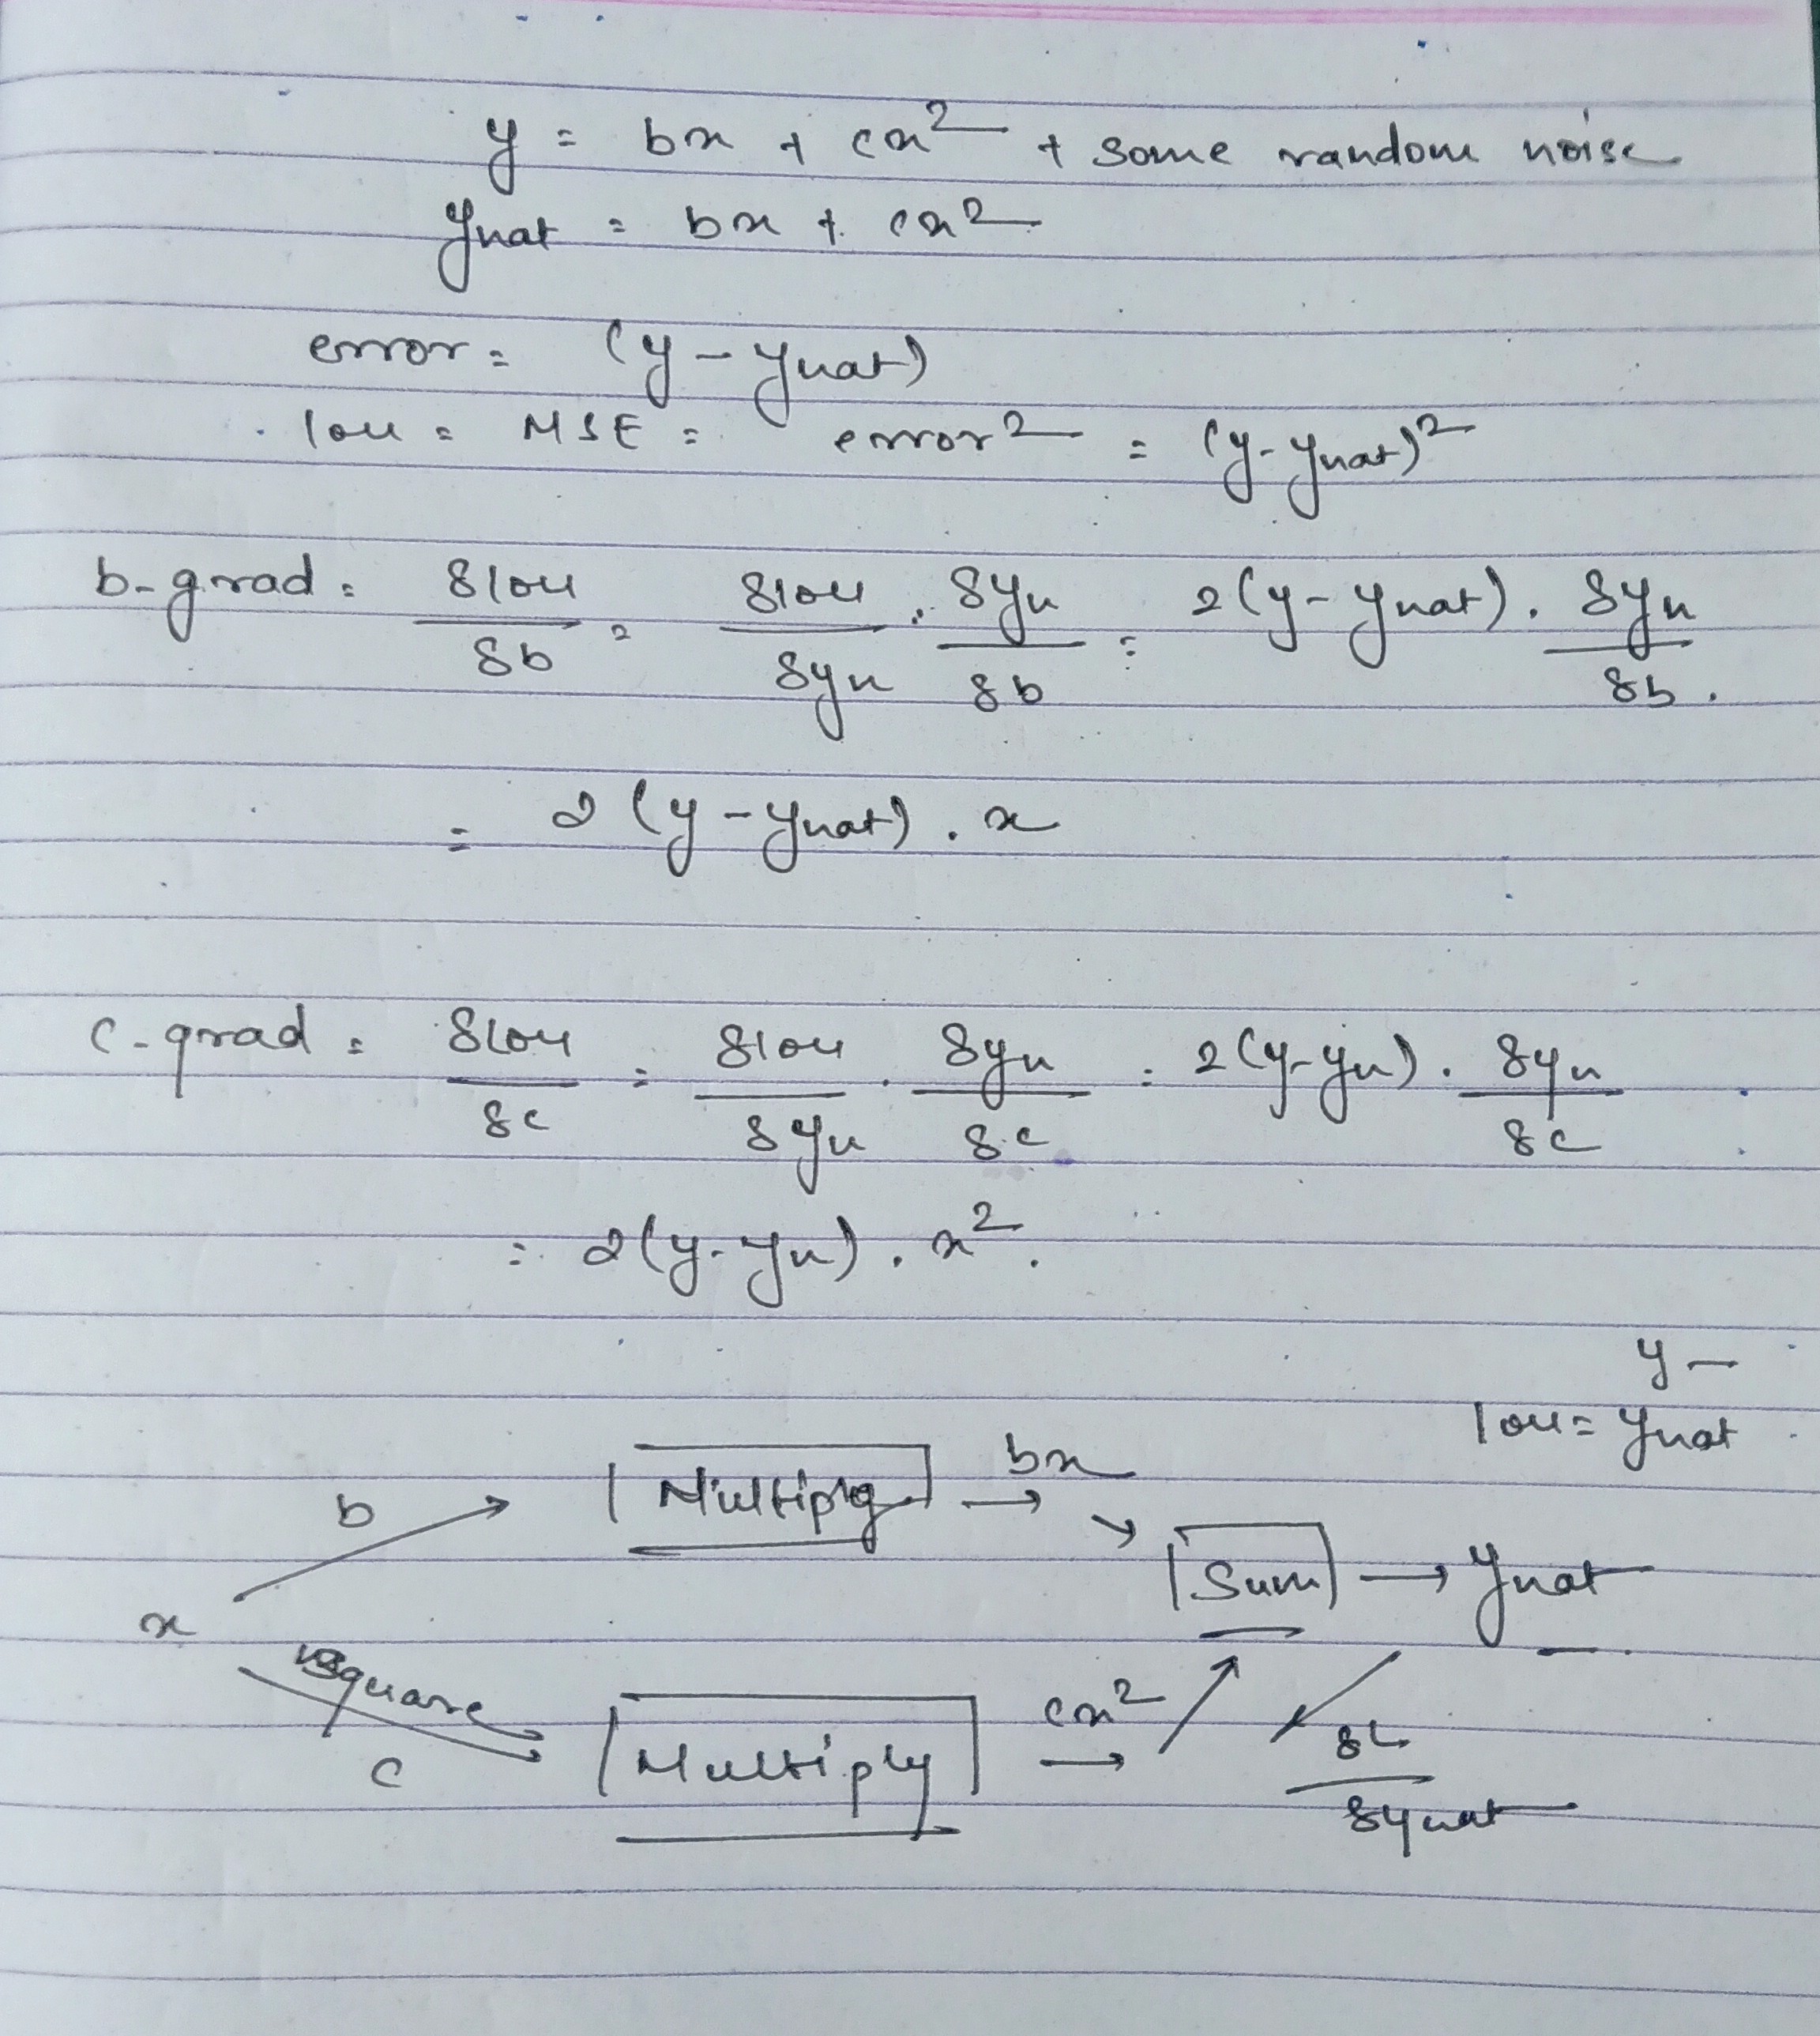 y = bx + cx² + some random noise
yhat = bx + cx²
error = (y - yhat)
loss = MSE = error² = (y - yhat)²
b-grad = δloss/δb = δloss/δyh . δyh/δb = 2(y - yhat) . δyh/δb .
= 2(y - yhat) . x
c-grad = δloss/δc = δloss/δyh . δyh/δc = 2(y-yh) . δyh/δc
= 2(y-yh) . x² .
y -
loss = yhat
b Multiply bx
Sum → yhat
x
square
c Multiply cx²
δL/δyhat